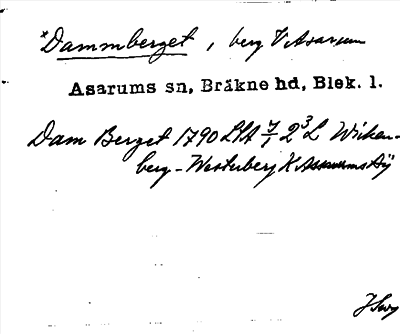 *Dammberget, berg V Asarum
Asarums sn, Bräkne hd, Blek. l.
Dam Berget 1790 LSA 7/1 2³L Wicken-
berg-Westerberg K Asarums By